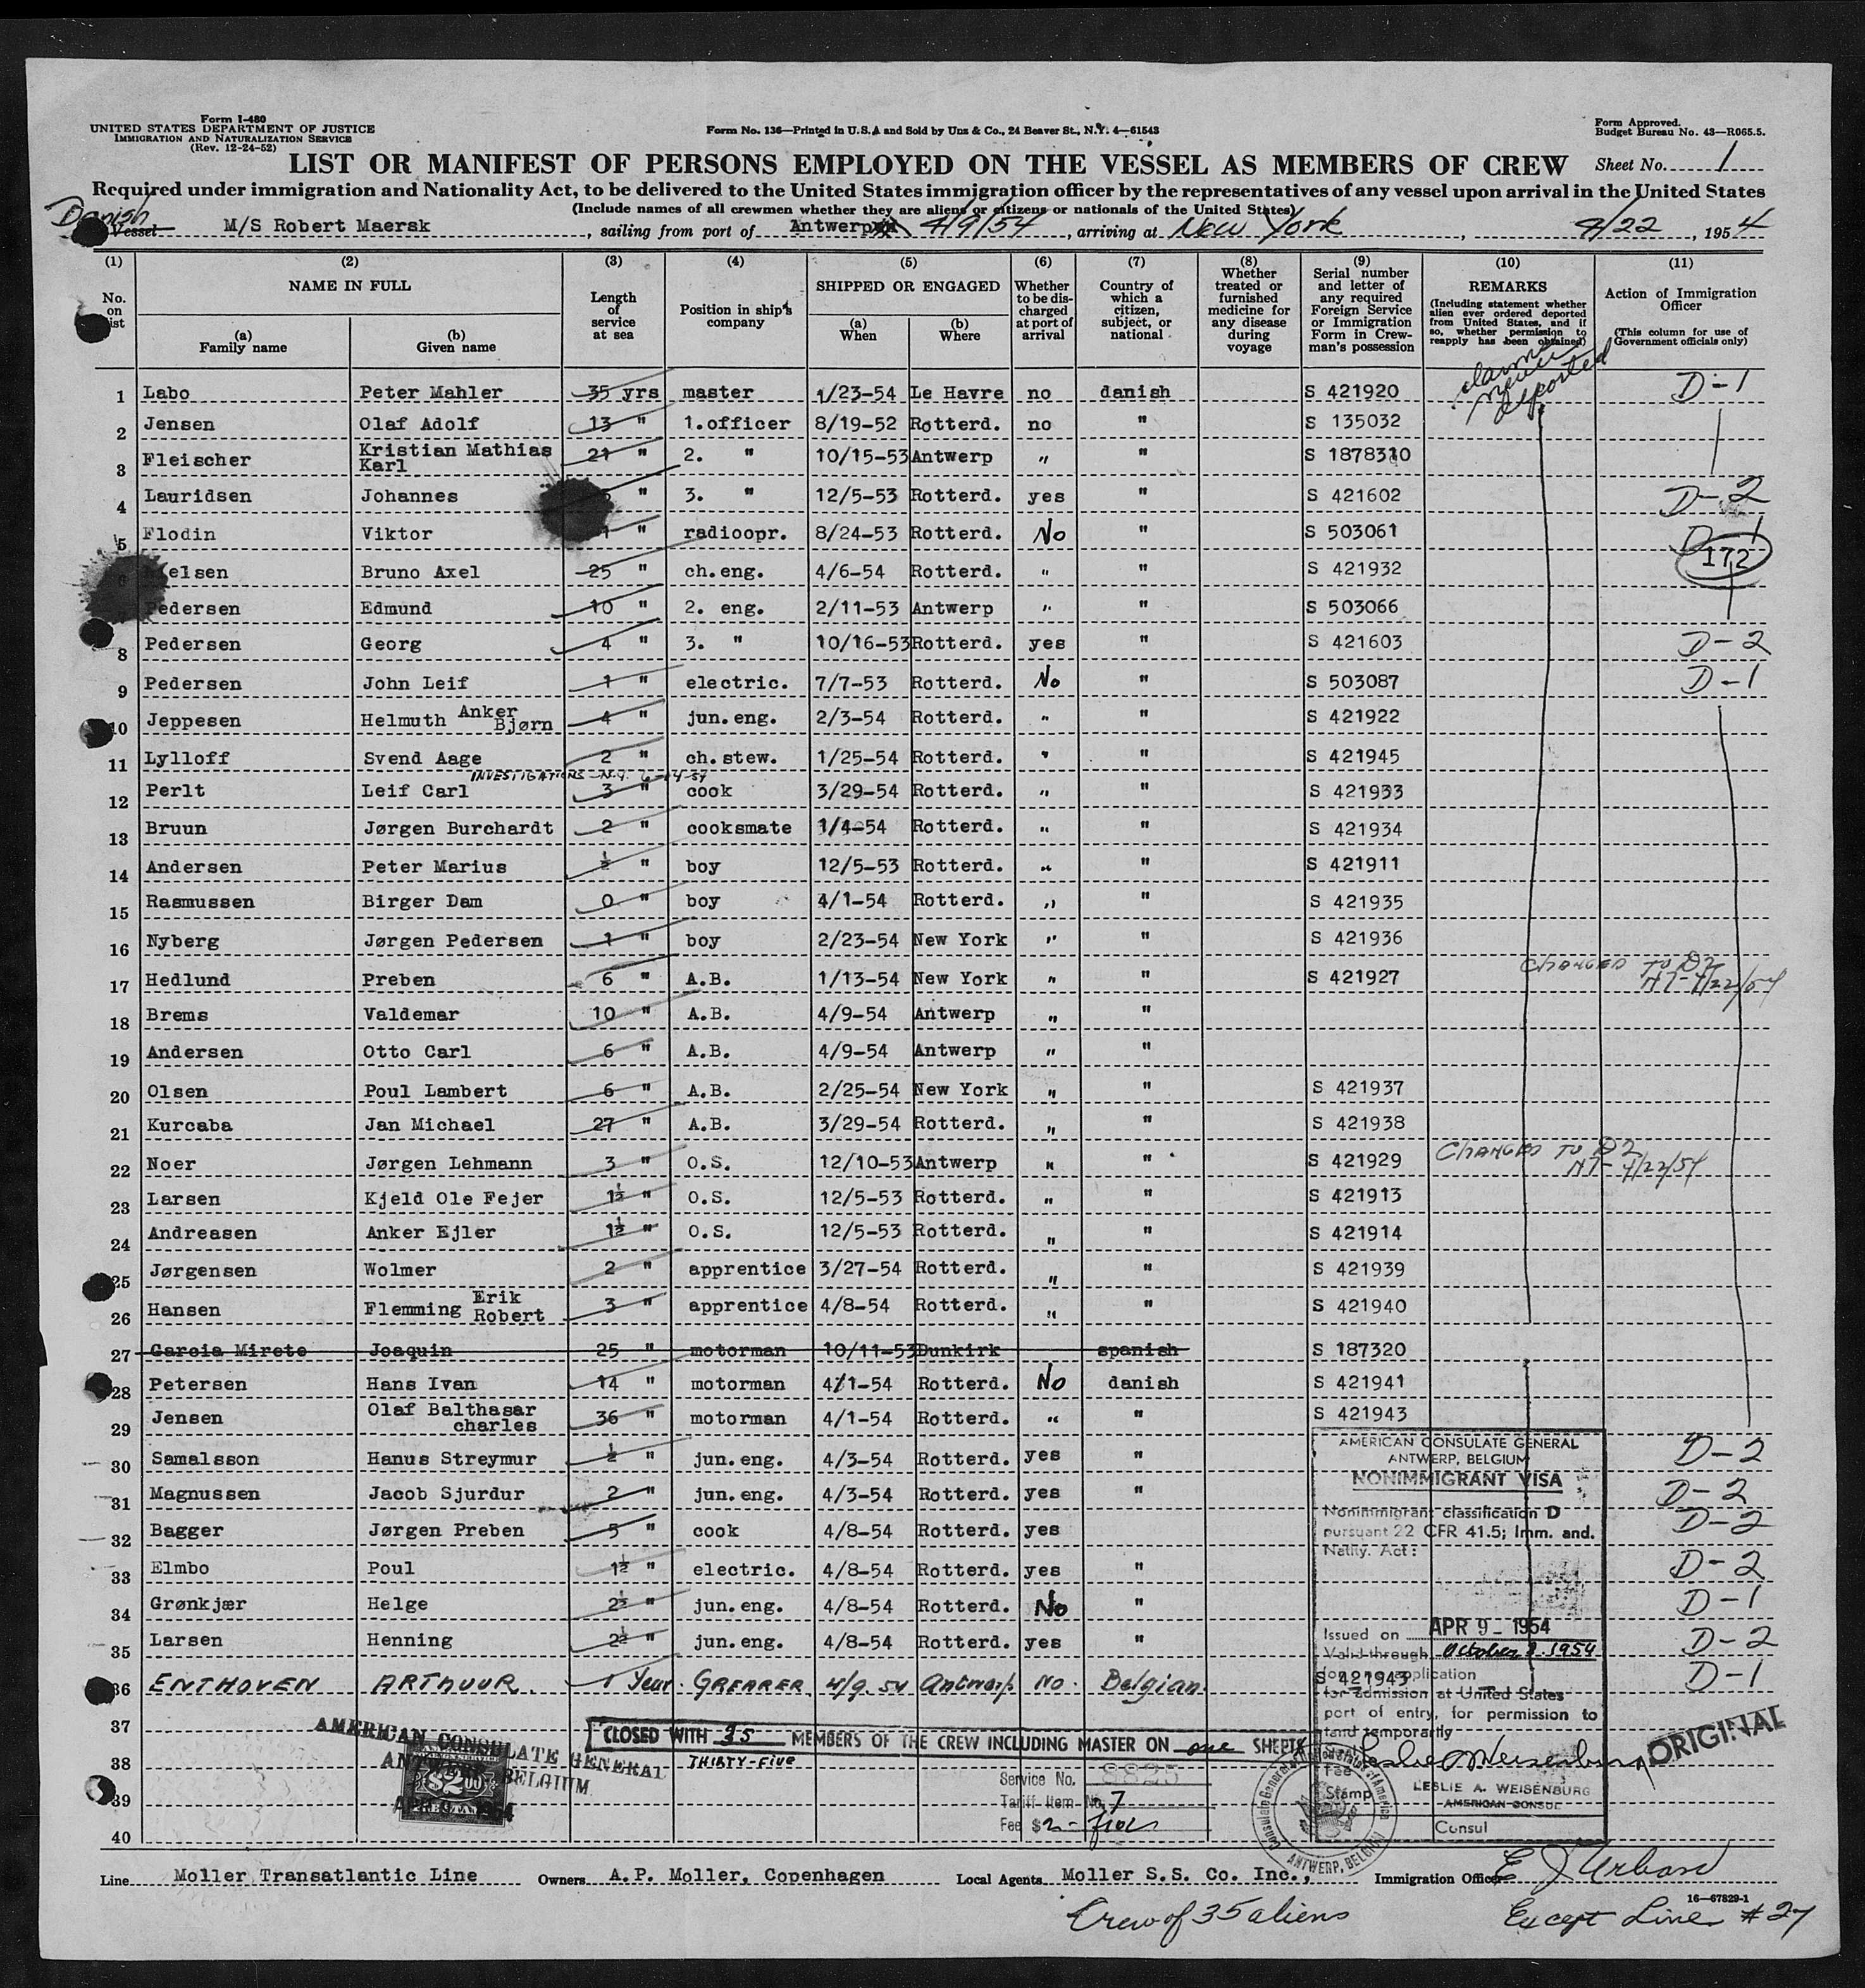 Form I-480
UNITED STATES DEPARTMENT OF JUSTICE
IMMIGRATION AND NATURALIZATION SERVICE
(Rev. 12-24-52)
Form No. 136—Printed in U.S.A and Sold by Unz & Co., 24 Beaver St., N.Y. 4—61543
Form Approved.
Budget Bureau No. 43—R065.5.
LIST OR MANIFEST OF PERSONS EMPLOYED ON THE VESSEL AS MEMBERS OF CREW Sheet No. 1
Required under immigration and Nationality Act, to be delivered to the United States immigration officer by the representatives of any vessel upon arrival in the United States
(Include names of all crewmen whether they are aliens or citizens or nationals of the United States)
Danish Vessel M/S Robert Maersk, sailing from port of Antwerp 4/9/54, arriving at New York, 4/22, 1954
(1) (2) (3) (4) (5) (6) (7) (8) (9) (10) (11)
No. on list
NAME IN FULL
(a) Family name
(b) Given name
Length of service at sea
Position in ship's company
SHIPPED OR ENGAGED
(a) When
(b) Where
Whether to be discharged at port of arrival
Country of which a citizen, subject, or national
Whether treated or furnished medicine for any disease during voyage
Serial number and letter of any required Foreign Service or Immigration Form in Crewman's possession
REMARKS
(Including statement whether alien ever ordered deported from United States, and if so, whether permission to reapply has been obtained)
Action of Immigration Officer
(This column for use of Government officials only)
never deported
1 Labo Peter Mahler 35 yrs master 1/23-54 Le Havre no danish S 421920 D-1
2 Jensen Olaf Adolf 13 " 1.officer 8/19-52 Rotterd. no " S 135032
3 Fleischer Kristian Mathias Karl 21 " 2. " 10/15-53 Antwerp " " S 1878310
4 Lauridsen Johannes " 3. " 12/5-53 Rotterd. yes " S 421602 D-2
5 Flodin Viktor 1 " radioopr. 8/24-53 Rotterd. No " S 503061 D-1
172
elsen Bruno Axel 25 " ch.eng. 4/6-54 Rotterd. " " S 421932
Pedersen Edmund 10 " 2. eng. 2/11-53 Antwerp " " S 503066
8 Pedersen Georg 4 " 3. " 10/16-53 Rotterd. yes " S 421603 D-2
9 Pedersen John Leif 1 " electric. 7/7-53 Rotterd. No " S 503087 D-1
10 Jeppesen Helmuth Anker Bjørn 4 " jun.eng. 2/3-54 Rotterd. " " S 421922
11 Lylloff Svend Aage 2 " ch.stew. 1/25-54 Rotterd. " " S 421945
INVESTIGATIONS-N.Y.
12 Perlt Leif Carl 3 " cook 3/29-54 Rotterd. " " S 421933
13 Bruun Jørgen Burchardt 2 " cooksmate 1/4-54 Rotterd. " " S 421934
14 Andersen Peter Marius ½ " boy 12/5-53 Rotterd. " " S 421911
15 Rasmussen Birger Dam 0 " boy 4/1-54 Rotterd. " " S 421935
16 Nyberg Jørgen Pedersen 1 " boy 2/23-54 New York " " S 421936
17 Hedlund Preben 6 " A.B. 1/13-54 New York " " S 421927 CHANGED TO D2 4/22/54
18 Brems Valdemar 10 " A.B. 4/9-54 Antwerp " "
19 Andersen Otto Carl 6 " A.B. 4/9-54 Antwerp " "
20 Olsen Poul Lambert 6 " A.B. 2/25-54 New York " " S 421937
21 Kurcaba Jan Michael 27 " A.B. 3/29-54 Rotterd. " " S 421938
22 Noer Jørgen Lehmann 3 " O.S. 12/10-53 Antwerp " " S 421929 CHANGED TO D2 4/22/54
23 Larsen Kjeld Ole Fejer 1½ " O.S. 12/5-53 Rotterd. " " S 421913
24 Andreasen Anker Ejler 1½ " O.S. 12/5-53 Rotterd. " " S 421914
25 Jørgensen Wolmer 2 " apprentice 3/27-54 Rotterd. " " S 421939
26 Hansen Flemming Erik Robert 3 " apprentice 4/8-54 Rotterd. " " S 421940
27 Garcia Mirete Joaquin 25 " motorman 10/11-53 Dunkirk spanish S 187320
28 Petersen Hans Ivan 14 " motorman 4/1-54 Rotterd. No danish S 421941
29 Jensen Olaf Balthasar charles 36 " motorman 4/1-54 Rotterd. " " S 421943
30 Samalsson Hanus Streymur ½ " jun.eng. 4/3-54 Rotterd. yes " D-2
31 Magnussen Jacob Sjurdur 2 " jun.eng. 4/3-54 Rotterd. yes " D-2
32 Bagger Jørgen Preben 5 " cook 4/8-54 Rotterd. yes D-2
33 Elmbo Poul 1½ " electric. 4/8-54 Rotterd. yes " D-2
34 Grønkjær Helge 2½ " jun.eng. 4/8-54 Rotterd. No " D-1
35 Larsen Henning 2½ " jun.eng. 4/8-54 Rotterd. yes " D-2
36 ENTHOVEN ARTHUUR 1 Year GREARER 4/9.54 Antwerp No. Belgian S 421943 D-1
37
38
39
40
AMERICAN CONSULATE GENERAL
ANTWERP, BELGIUM
NONIMMIGRANT VISA
Nonimmigrant classification D
pursuant 22 CFR 41.5; Imm. and.
Natlty. Act:
Issued on APR 9 - 1954
Valid through October 8. 1954
for application
for admission at United States
port of entry, for permission to
land temporarily
Leslie A Weisenburg
LESLIE A. WEISENBURG
AMERICAN CONSUL
Consul
Fee Stamp
ORIGINAL
AMERICAN CONSULATE GENERAL
ANTWERP, BELGIUM
APR 9 1954
$2.00
CLOSED WITH 35 MEMBERS OF THE CREW INCLUDING MASTER ON one SHEETS
THIRTY-FIVE
Service No. 8825
Tariff Item No. 7
Fee $ 2-
ANTWERP, BELGIUM
Line Moller Transatlantic Line Owners A.P. Moller, Copenhagen Local Agents Moller S.S. Co. Inc., Immigration Officer E J Urban
16—67829-1
Crew of 35 aliens
Except Line #27